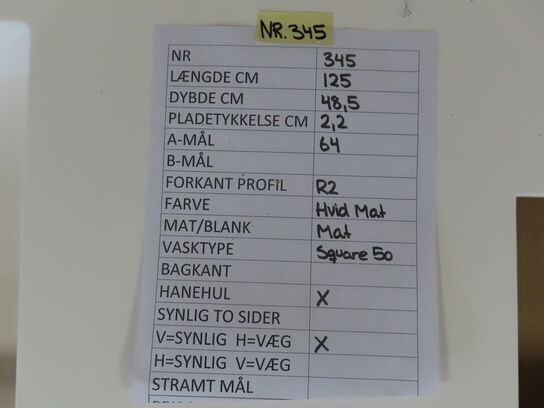 NR.345
NR 345
LÆNGDE CM 125
DYBDE CM 48,5
PLADETYKKELSE CM 2,2
A-MÅL 64
B-MÅL
FORKANT PROFIL R2
FARVE Hvid Mat
MAT/BLANK Mat
VASKTYPE Square 50
BAGKANT
HANEHUL X
SYNLIG TO SIDER
V=SYNLIG H=VÆG X
H=SYNLIG V=VÆG
STRAMT MÅL